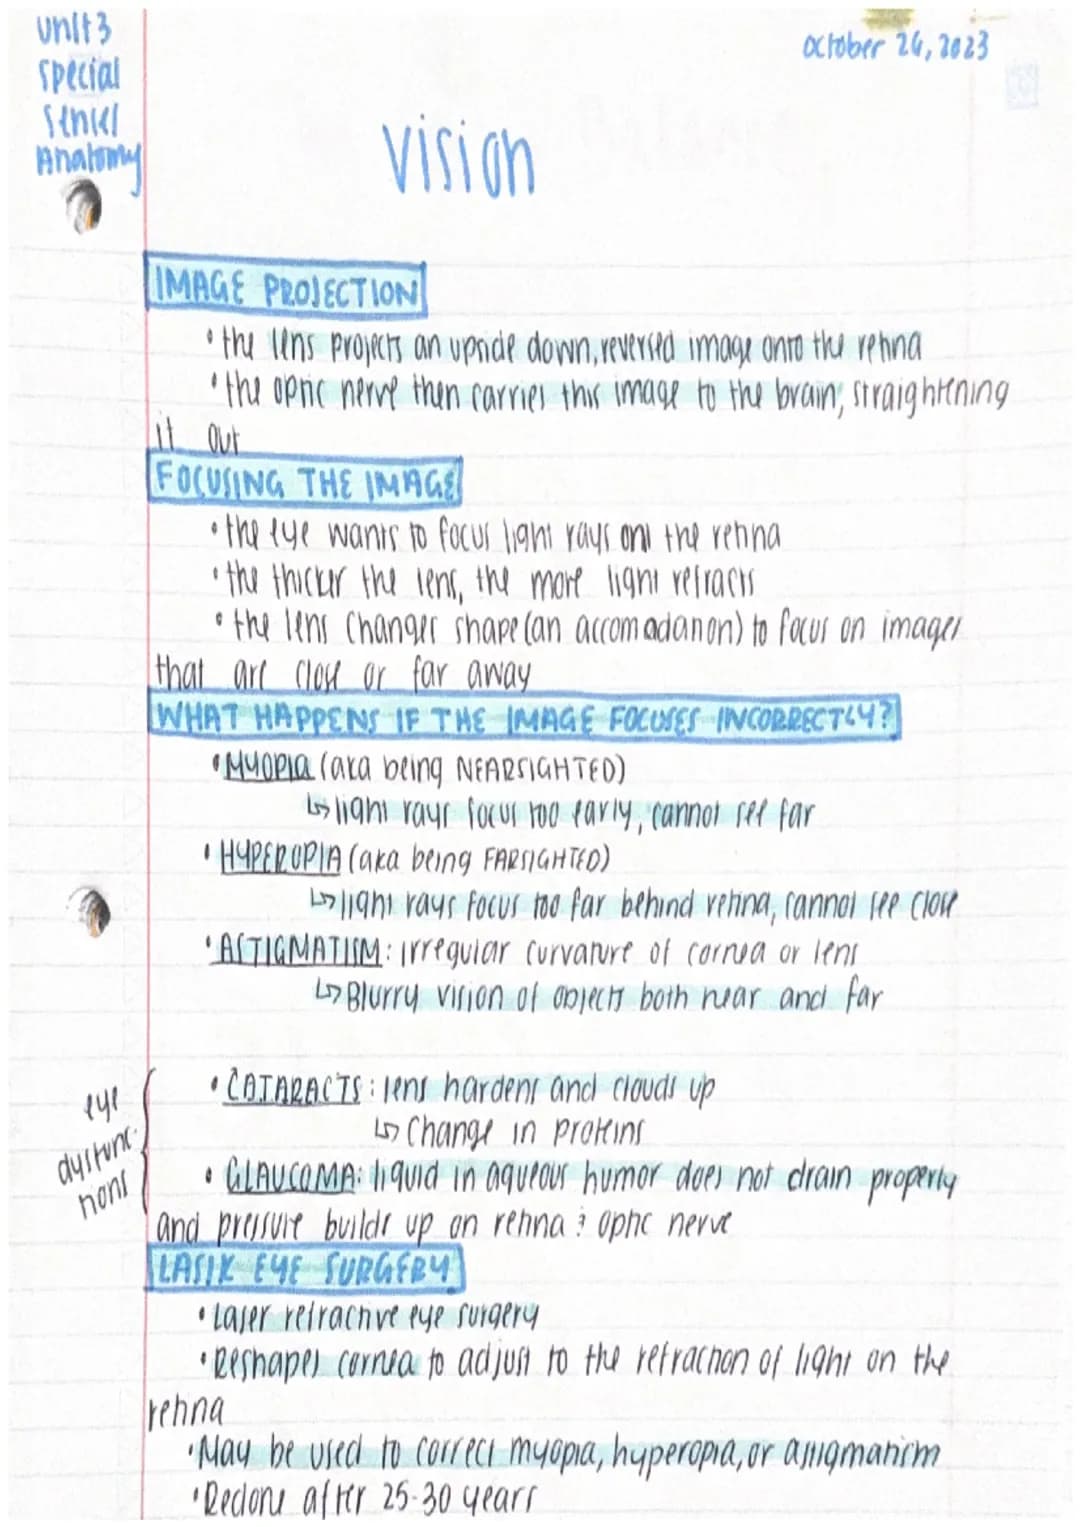 Unit 3
Special
Senses
Anatomy
October 26, 2023
Vision
IMAGE PROJECTION
• the lens projects an upside down, reversed image onto the retina
• the optic nerve then carries this image to the brain, straightening
it out
FOCUSING THE IMAGE
• the eye wants to focus light rays onto the retina
• the thicker the lens, the more light refracts
• the lens changes shape (an accomodation) to focus on images
that are close or far away
WHAT HAPPENS IF THE IMAGE FOCUSES INCORRECTLY?
• MYOPIA (aka being NEARSIGHTED)
↳ light rays focus too early, cannot see far
• HYPEROPIA (aka being FARSIGHTED)
↳ light rays focus too far behind retina, cannot see close
• ASTIGMATISM: irregular curvature of cornea or lens
↳ Blurry vision of objects both near and far
eye
dysfunc-
tions
• CATARACTS: lens hardens and clouds up
↳ Change in proteins
• GLAUCOMA: liquid in aqueous humor does not drain properly
and pressure builds up on retina & optic nerve
LASIK EYE SURGERY
• Laser refractive eye surgery
• Reshapes cornea to adjust to the refraction of light on the
retina
• May be used to correct myopia, hyperopia, or astigmatism
• Redone after 25-30 years